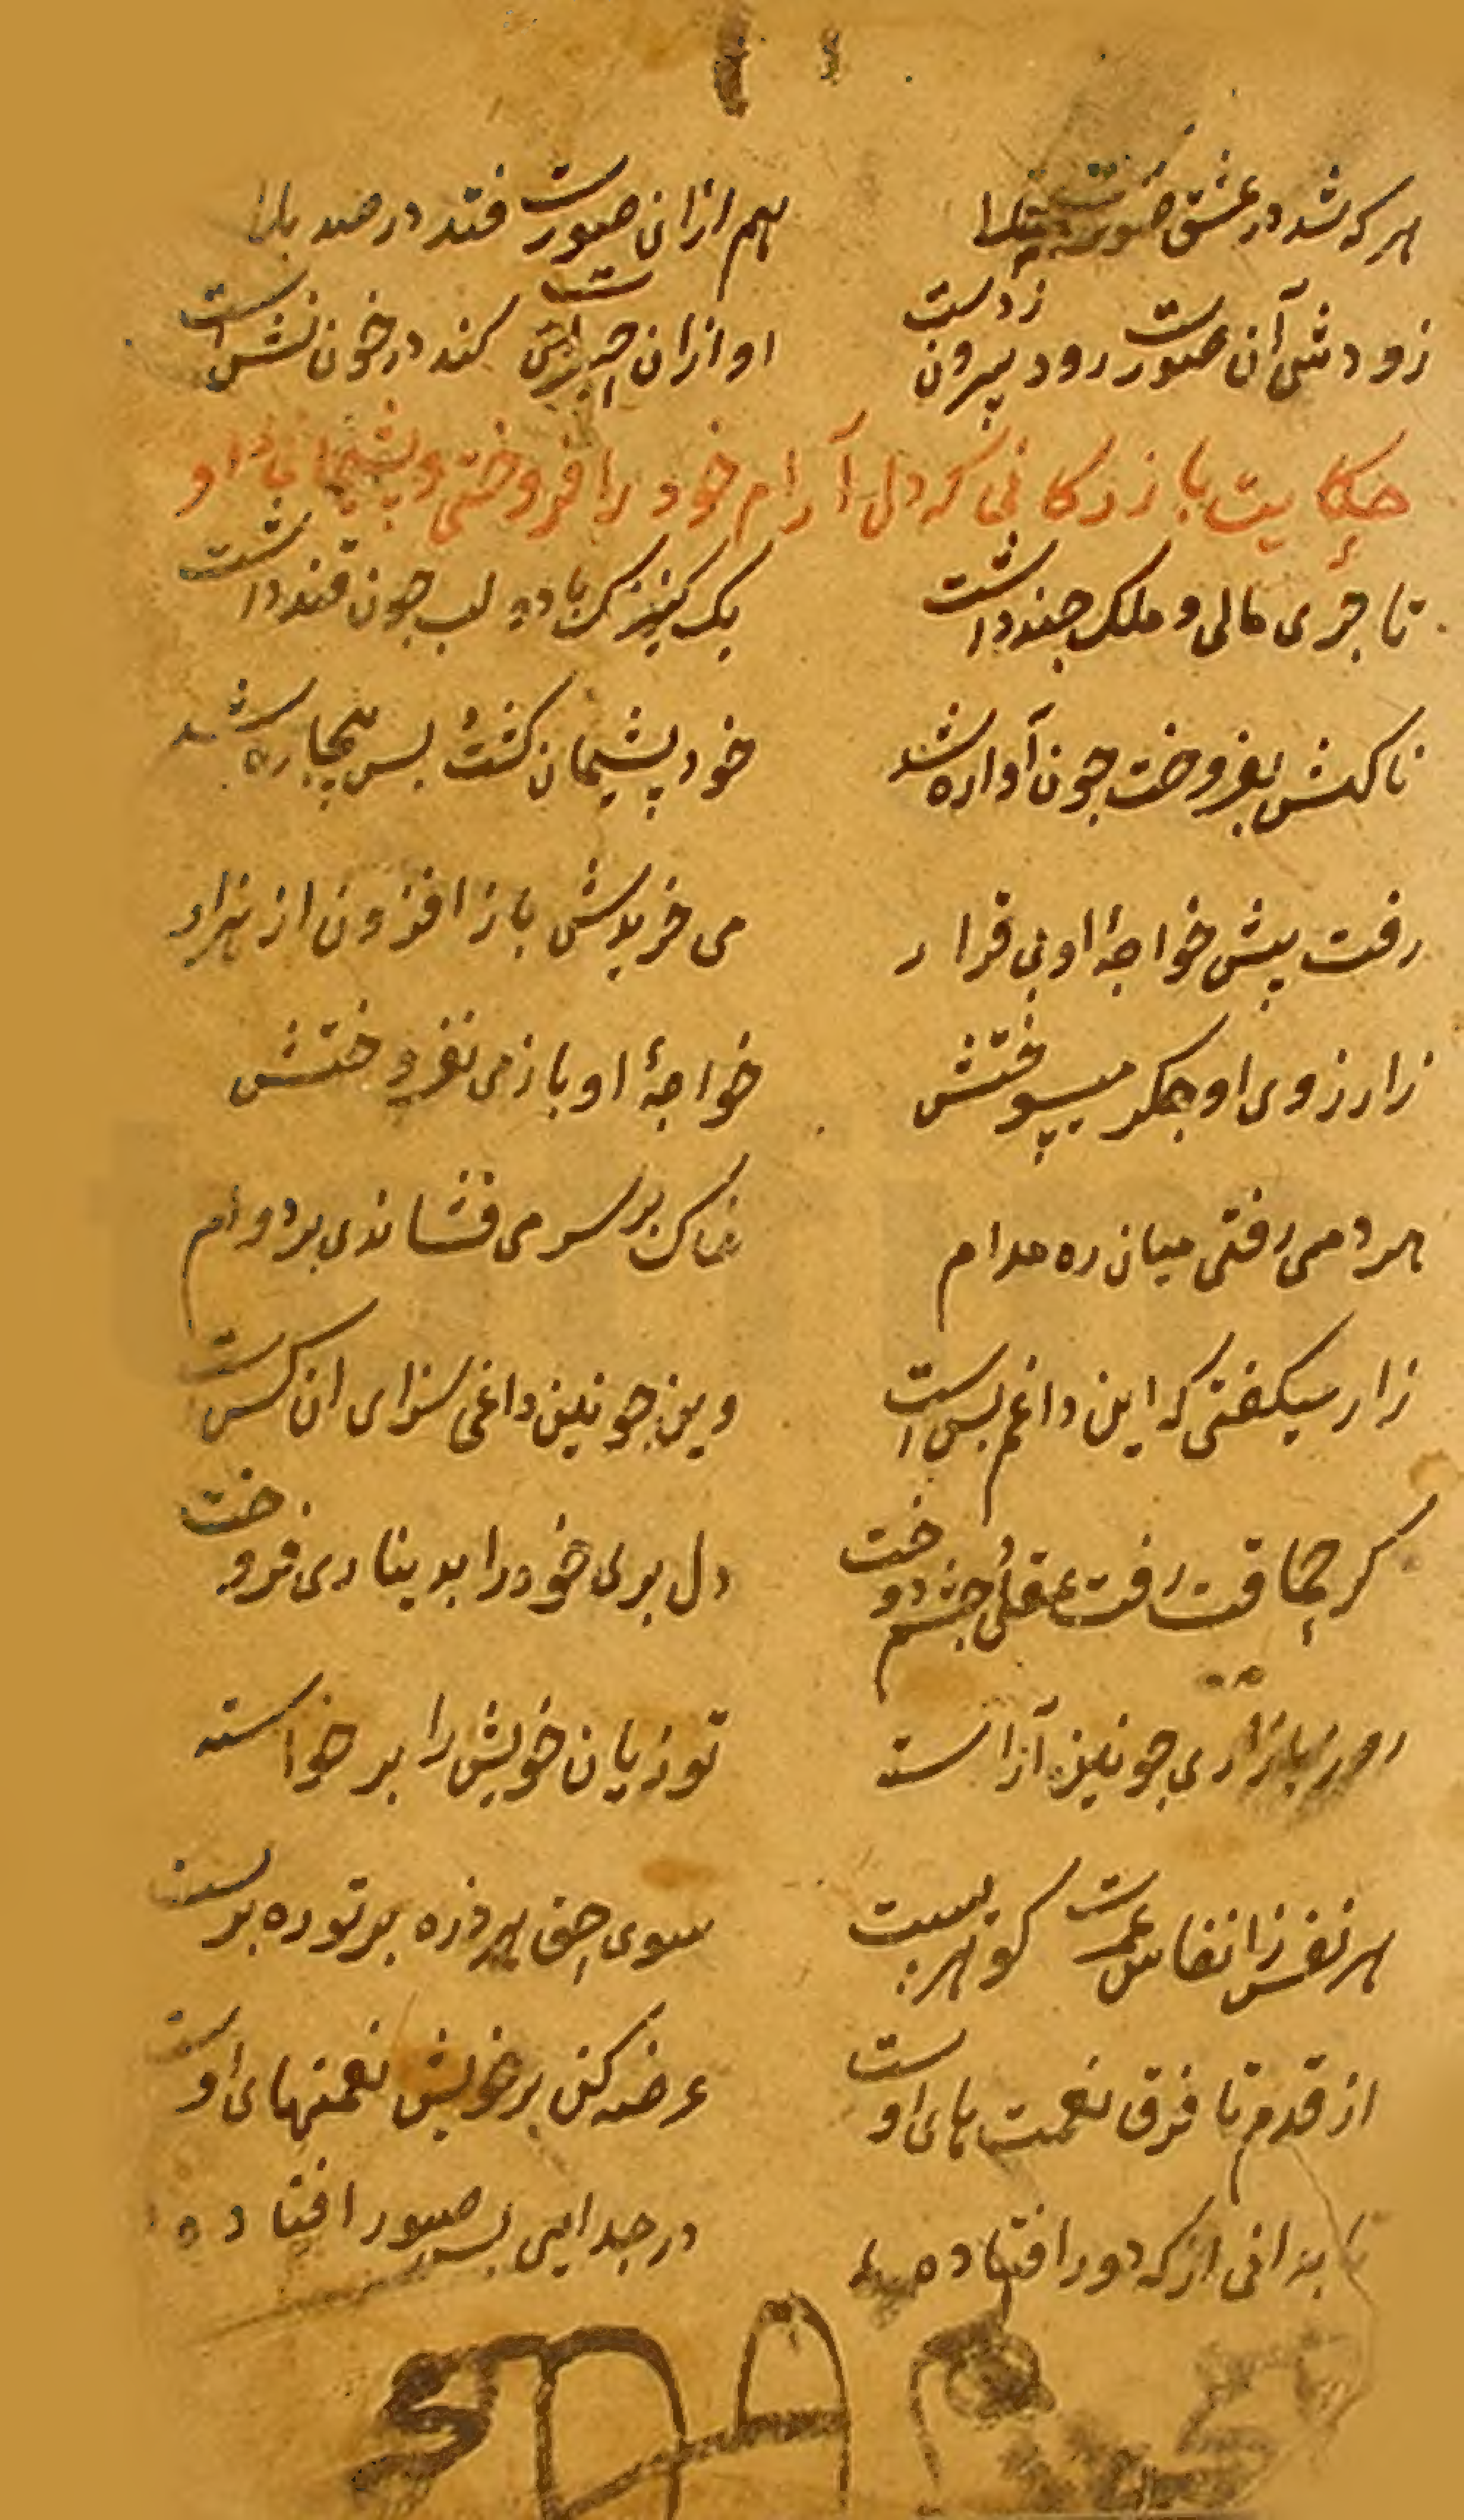 هر که شد در عشق صورت مبتلا هم ازان صورت فتد در صد بلا
زودش آن صورت رود بیرون زدست او ازان حیرت کند در خون نشست
حکایت بازرکانی که دل آرام خود را فروختی و پشیمانی او
تاجری مالی و ملک چند داشت یک کنیزک با دو لب چون قند داشت
ناکهش بفروخت چون آواره شد خود پشیمان کشت بس بیچاره شد
رفت پیش خواجهٔ او بی قرار می خریدش باز افزون از هزار
زارزوی او جکر میسوختش خواجهٔ او باز می نفروختش
هر دمی رفتی میان ره مدام خاک بر سر می فشاندی بر دوام
زار میکفتی که این داغم بس است وین چونین داغی سزای ان کس است
کز حماقت رفت عقلی چشم دوخت دل بری خود را بدیناری فروخت
روز بازاری چونین آراسته تو زیان خویش را بر خواسته
هر نفس ز انفاس عمرت کوهریست سوی حق هر ذره بر تو رهبریست
از قدم تا فرق نعمت های اوست عرضه کن بر خویش نعمتهای اوست
تا بدانی از که دور افتاده در جدایی بس صبور افتاده